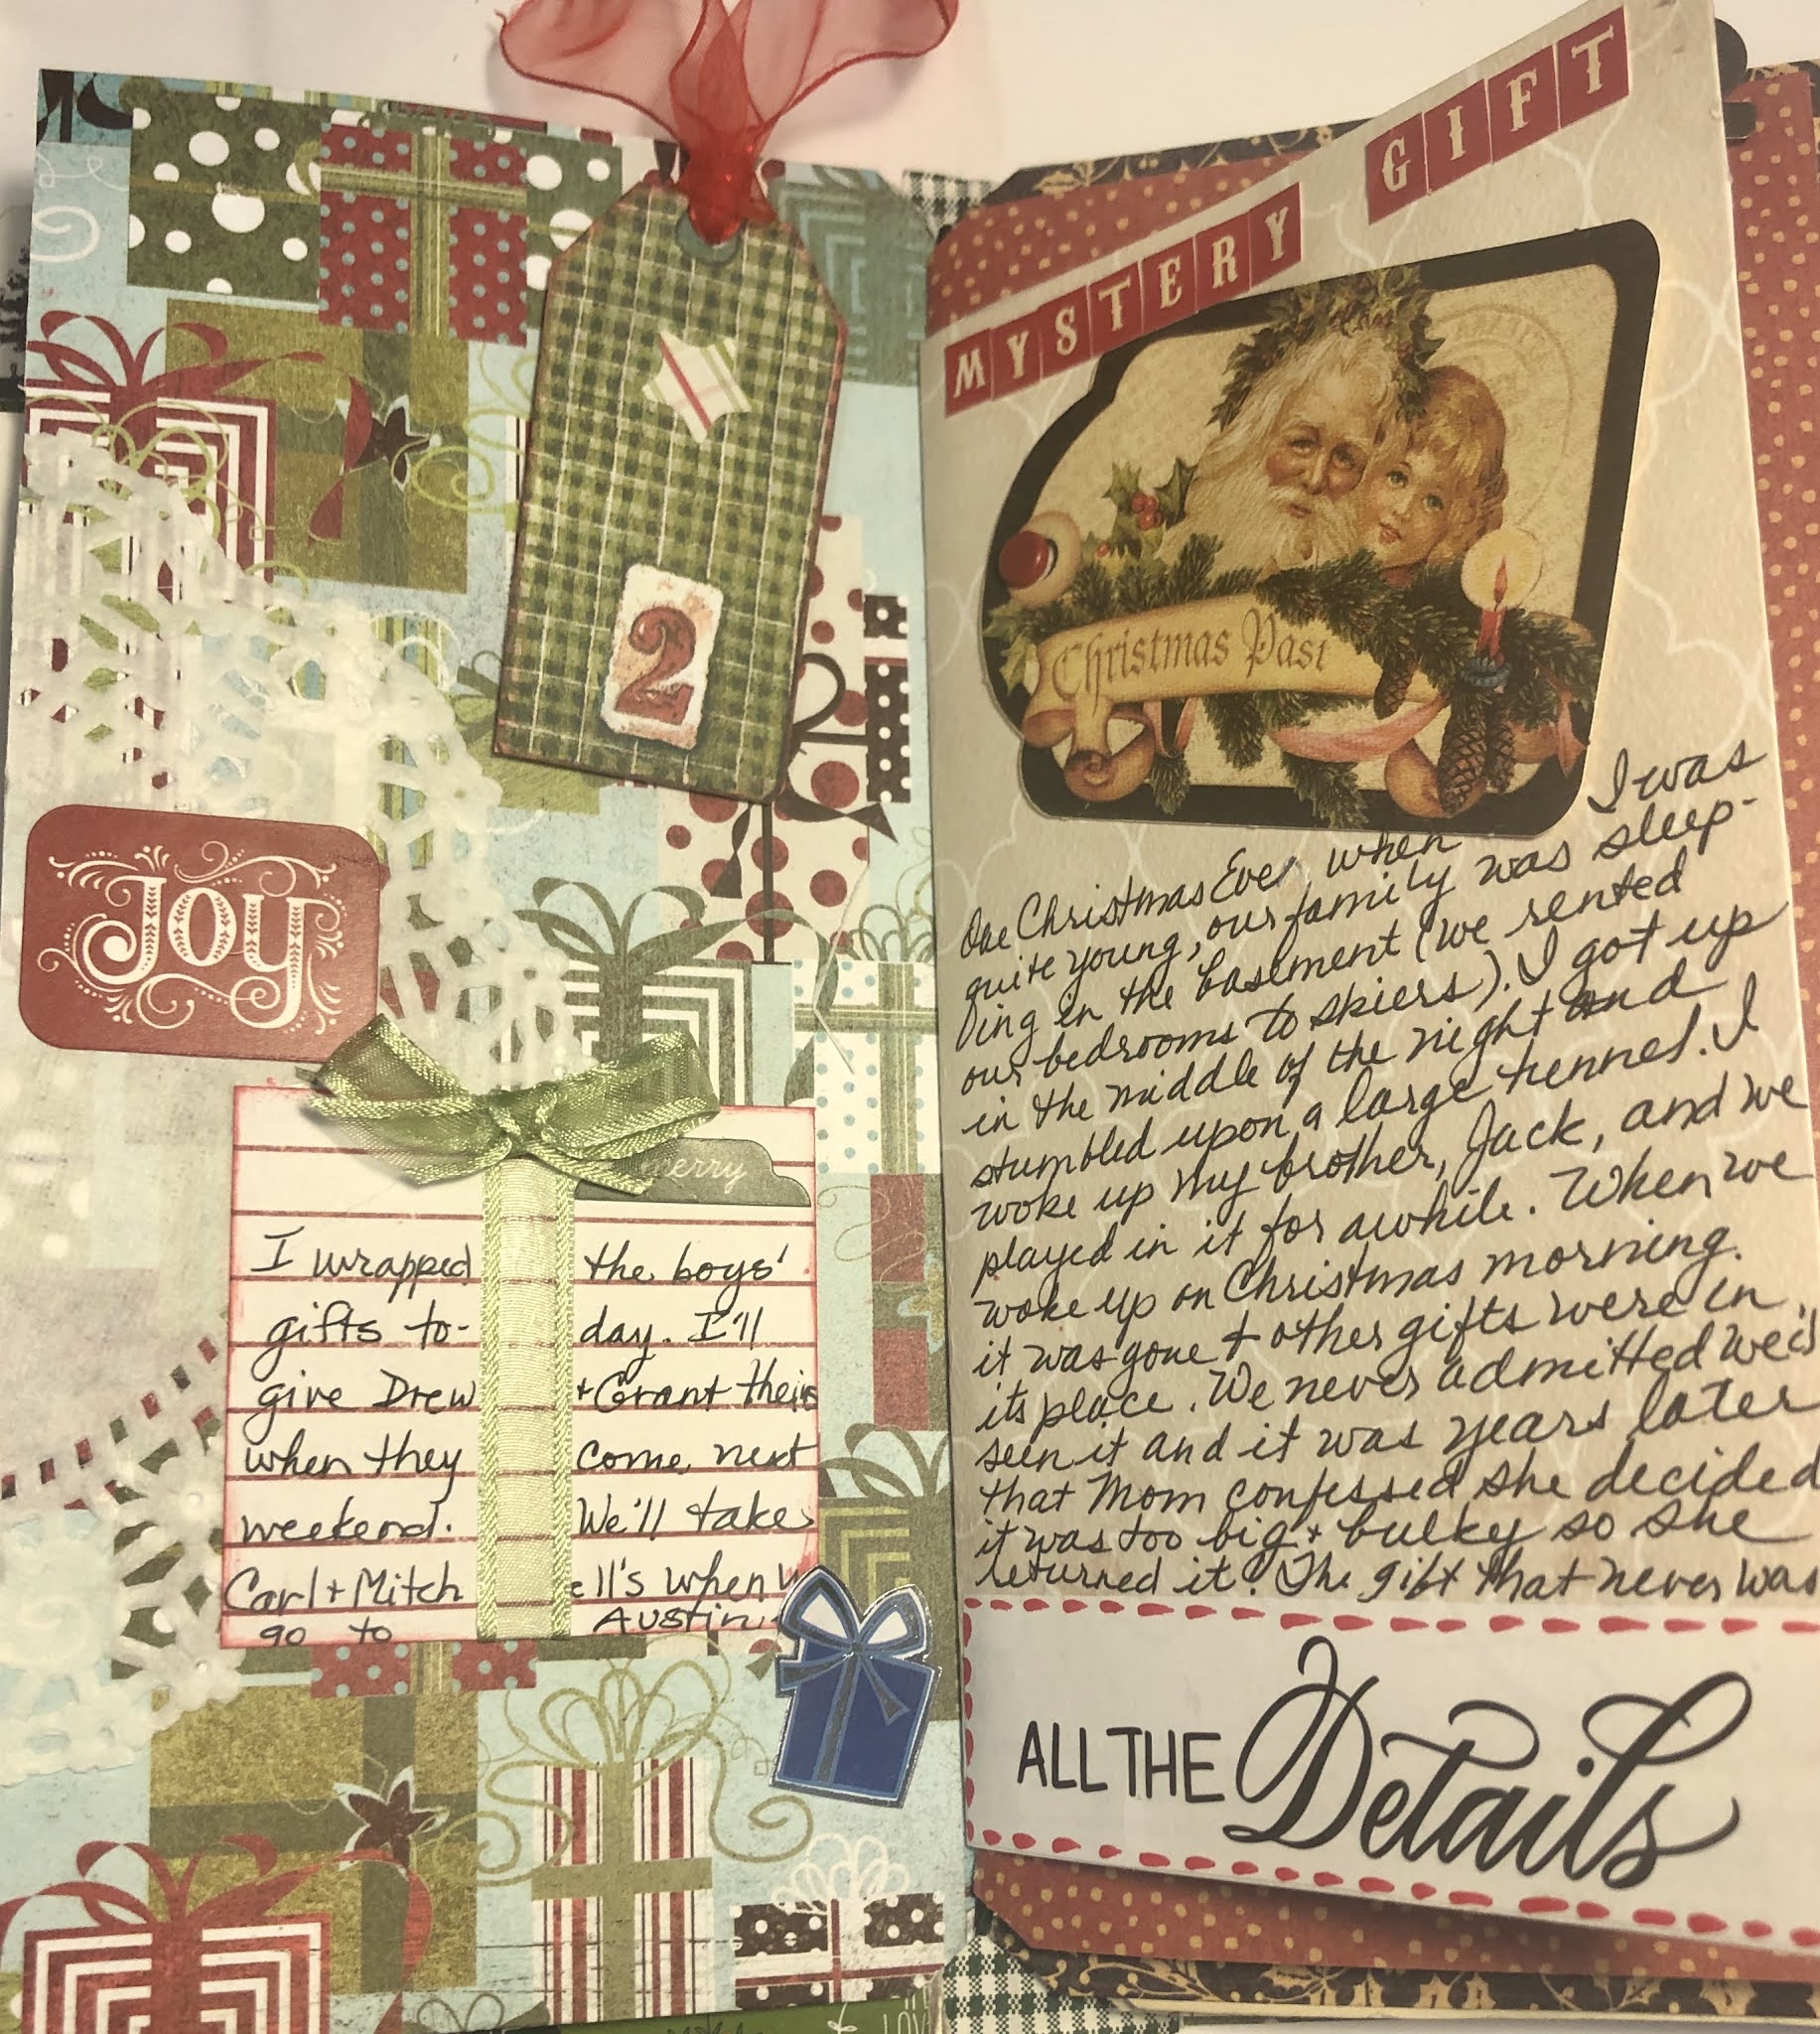 2
Joy
merry
I wrapped the boys'
gifts to- day. I'll
give Drew + Grant theirs
when they come next
weekend. We'll take
Carl + Mitch ell's when
go to Austin
MYSTERY GIFT
Christmas Past
One Christmas Eve, when I was
quite young, our family was sleep-
ing in the basement (we rented
our bedrooms to skiers). I got up
in the middle of the night and
stumbled upon a large tunnel. I
woke up my brother, Jack, and we
played in it for awhile. When we
woke up on Christmas morning.
it was gone + other gifts were in
its place. We never admitted we'd
seen it and it was years later
that Mom confessed she decided
it was too big + bulky so she
returned it! The gift that never was
ALL THE Details
LOVE